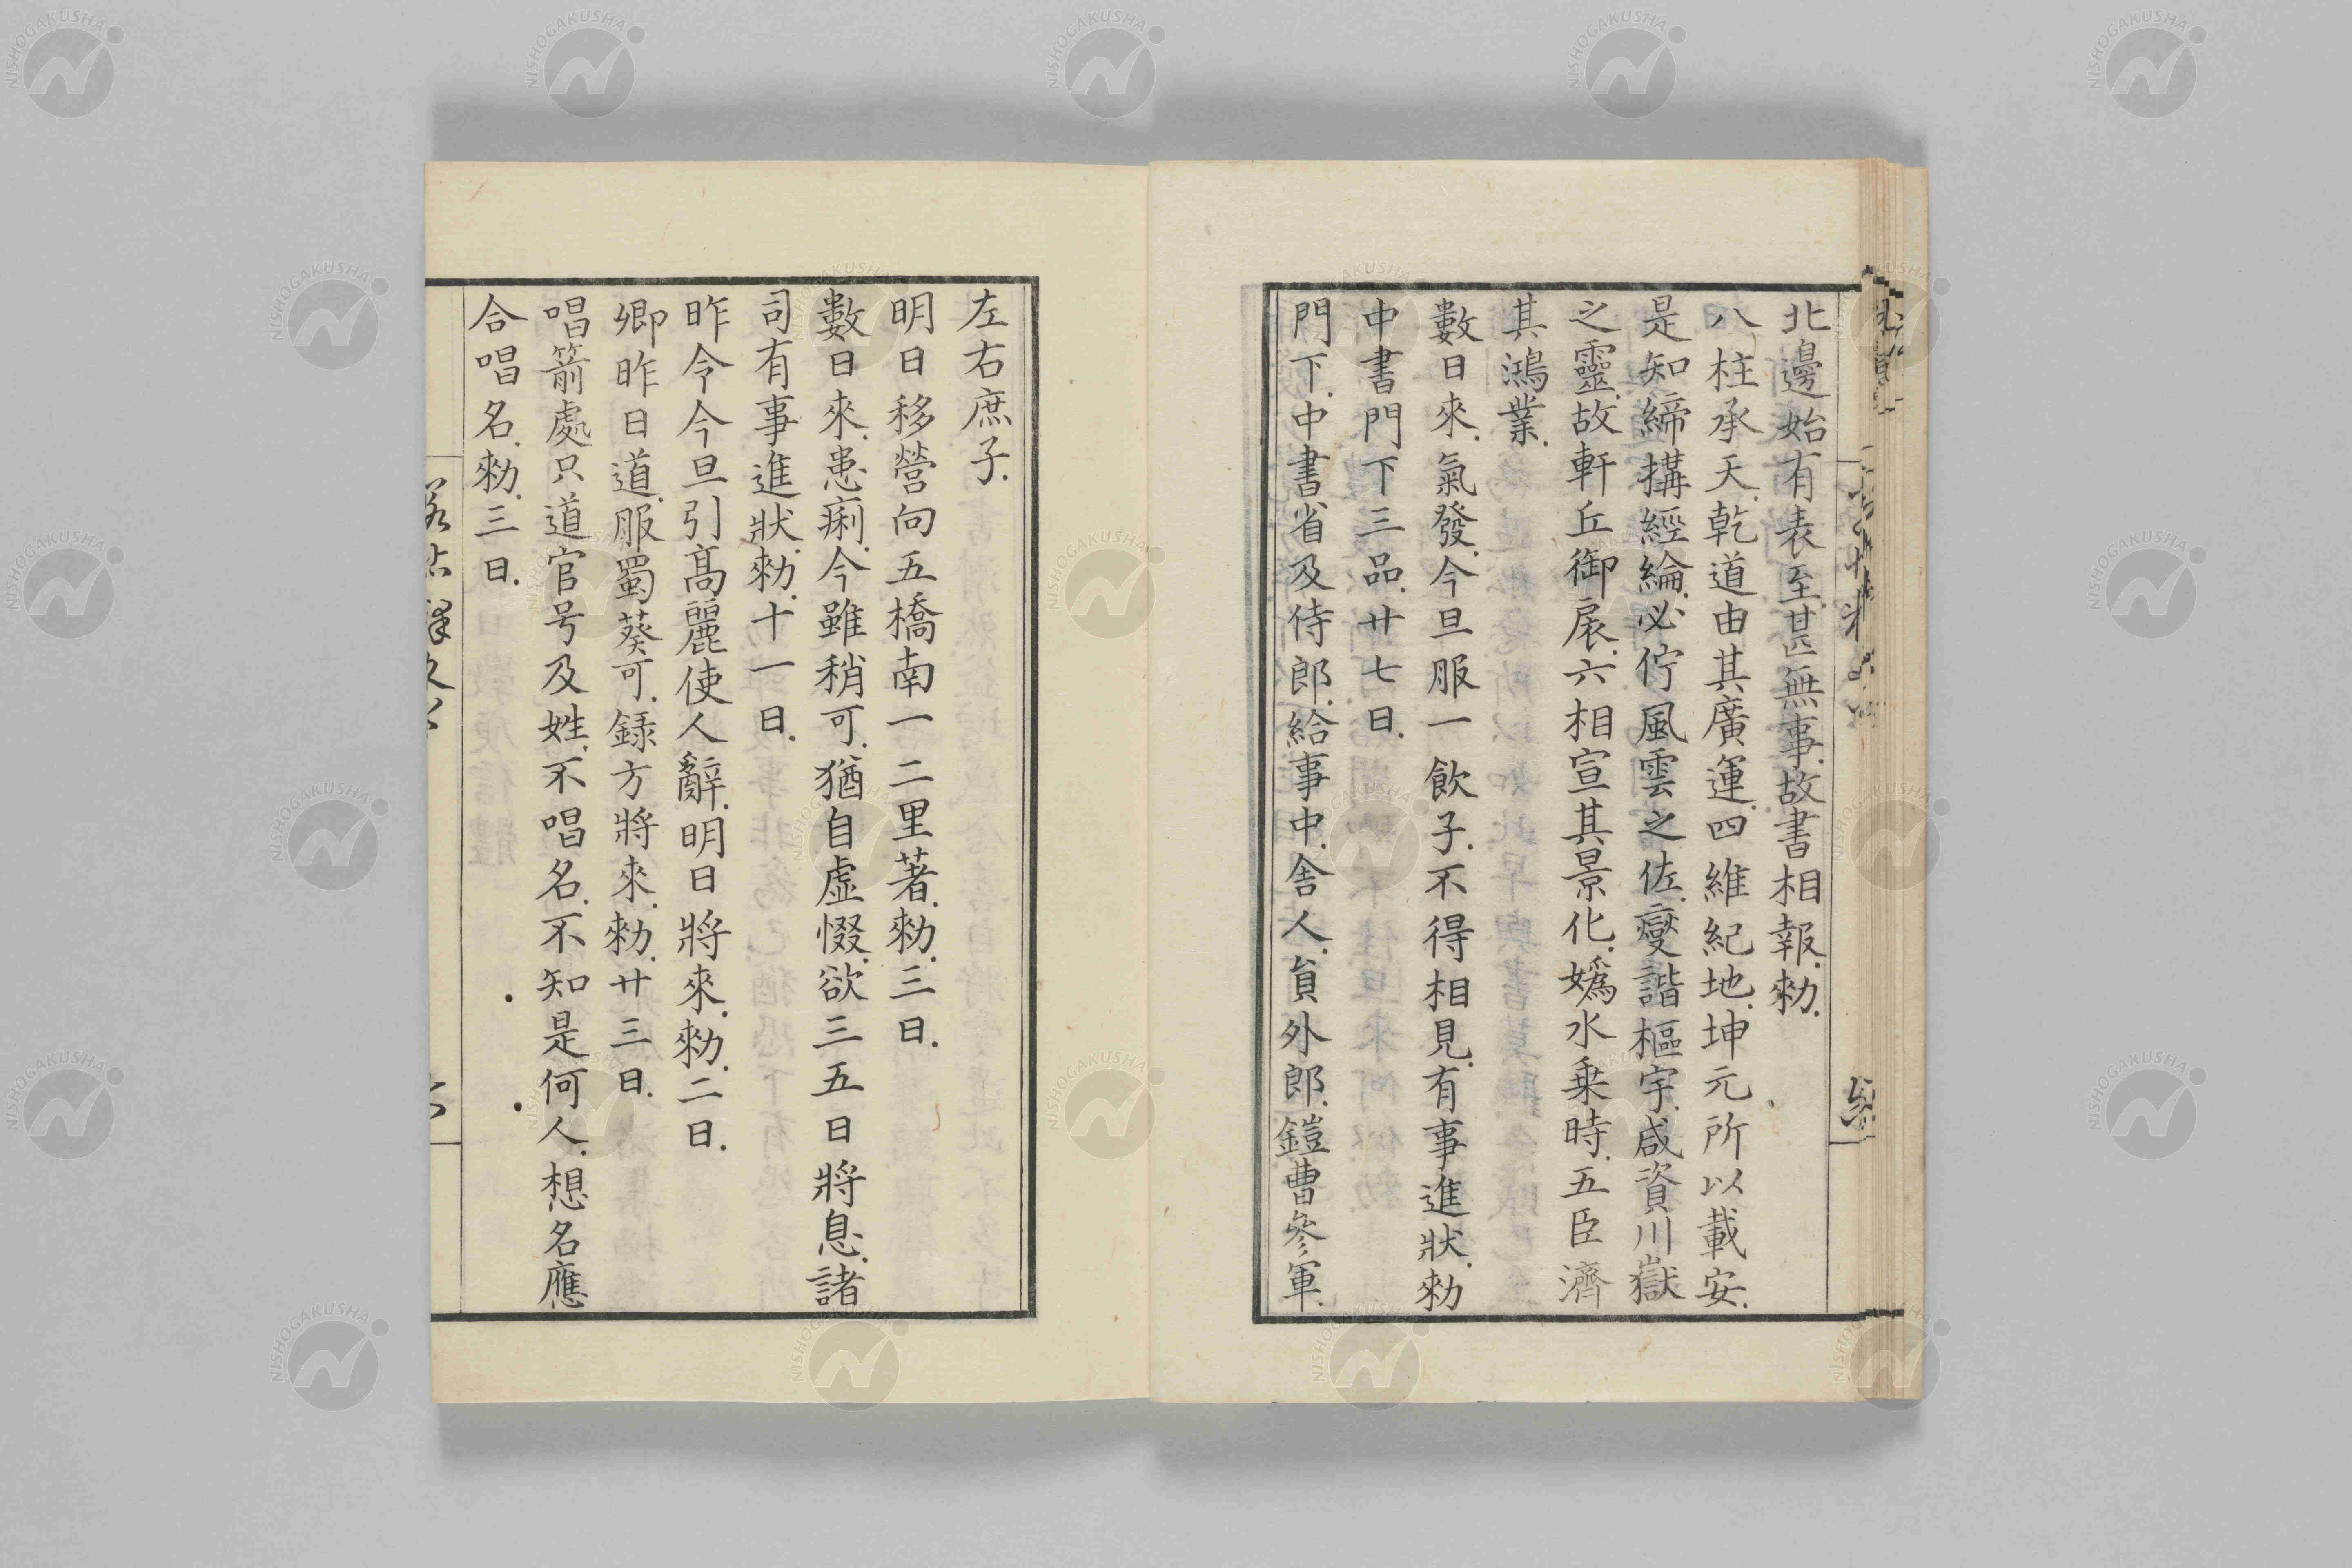 北邊始有表至.甚無事.故書相報.勑.
八柱承天.乾道由其廣運.四維紀地.坤元所以載安.
是知締搆經綸.必佇風雲之佐.燮諧樞宇.咸資川嶽
之靈.故軒丘御扆.六相宣其景化.嬀水乗時.五臣濟
其鴻業.
數日來.氣發.今旦服一飲子.不得相見.有事進狀.勑
中書門下三品.廿七日.
門下.中書省及侍郎.給事中.舍人.負外郎.鎧曹參軍.
左右庶子.
明日移營向五橋南一二里著.勑.三日.
數日來.患痢.今雖稍可.猶自虛惙.欲三五日將息.諸
司有事進狀.勑.十一日.
昨令今旦引髙麗使人辭.明日將來.勑.二日.
卿昨日道.服蜀葵可.録方將來.勑.廿三日.
唱箭處只道官号及姓.不唱名.不知是何人.想名應
合唱名.勑.三日.